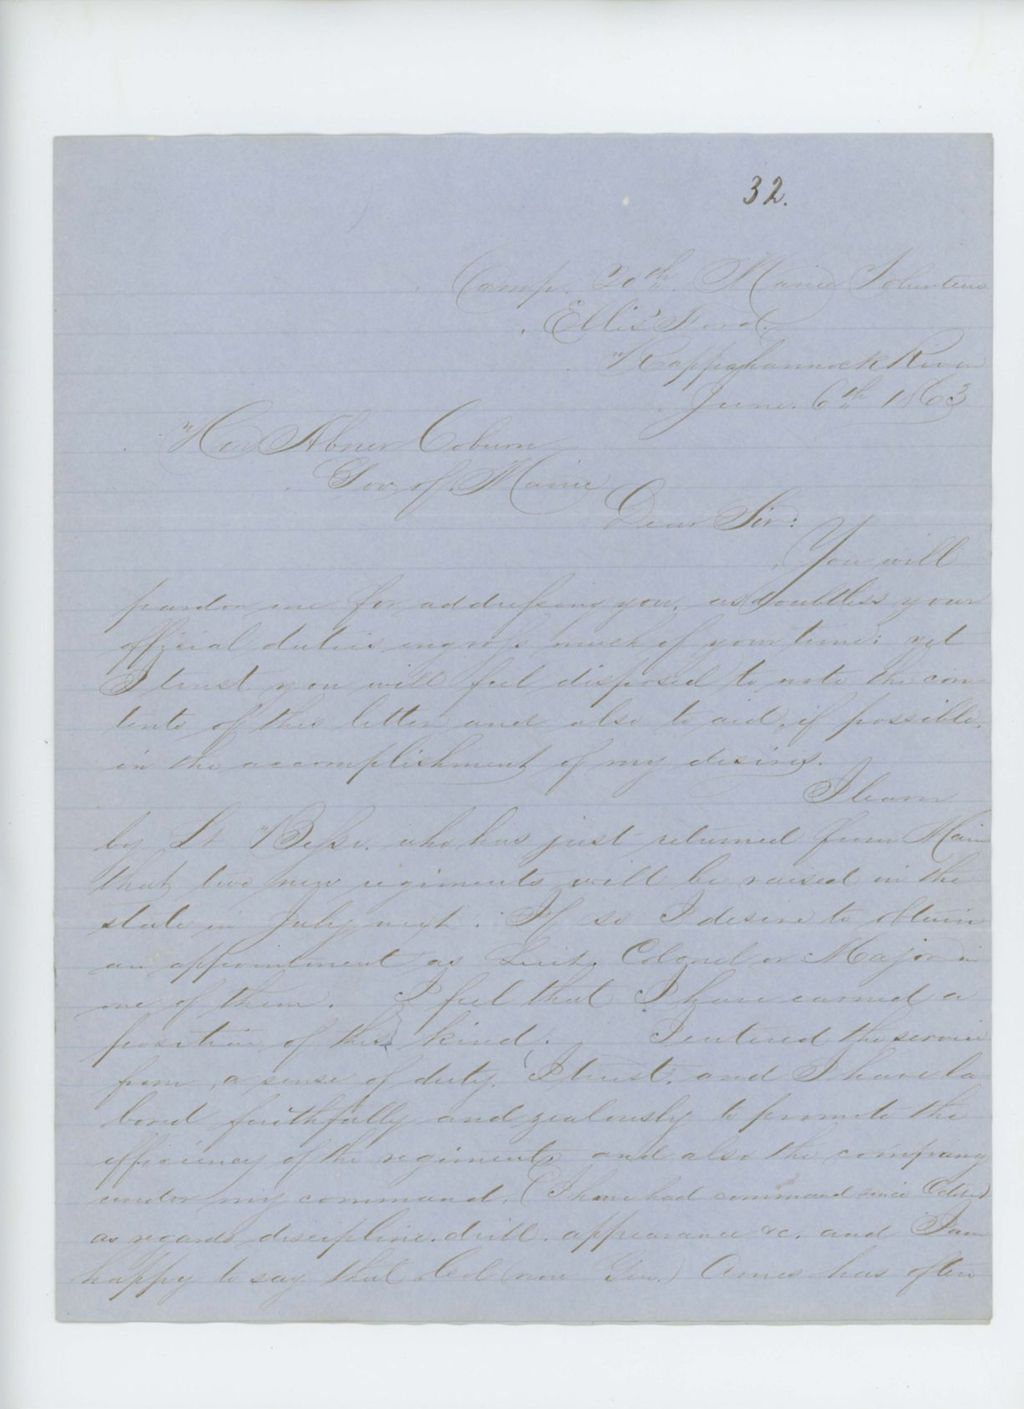 32.
Camp. 20th. Maine Volunteers
Ellis' Ford.
Rappahannock River
June. 6th 1863
Hon Abner Coburn
Gov. of. Maine
Dear Sir:
You will
pardon me for addressing you, as doubtless your
official duties engross much of your time: yet
I trust you will feel disposed to note the con-
tents of this letter and also to aid, if possible,
in the accomplishment of my desires.
I learn
by Lt who has just returned from Maine
that two new regiments will be raised in the
state in July next. If so I desire to obtain
an appointment as Lieut. Colonel or Major in
one of them. I feel that I have earned a
position of this kind. I entered the service
from a sense of duty, I trust, and I have la
bored faithfully and zealously to promote the
efficiency of the regiment, and also the company
under my command, (I have had command since
as regards discipline, drill, appearance &c. and I am
happy to say that Col (now Gen.) Ames has often